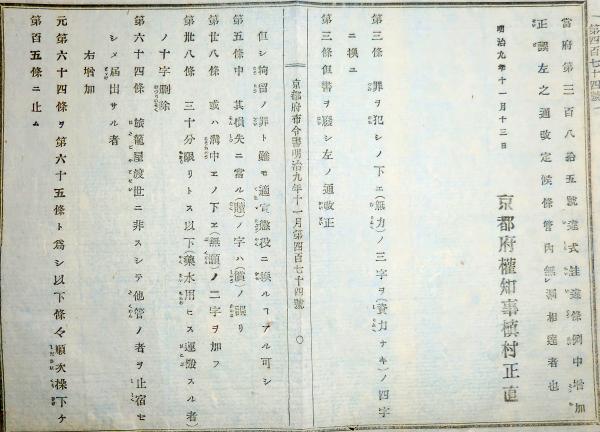 第四百七十四號
當府第三百八拾五號違式詿違條例中增加
正誤左之通改定候條管内無漏相達者也
明治九年十一月十三日
京都府權知事槇村正直
第三條 罪ヲ犯シノ下エ(無力)ノ三字ヲ(資力ナキ)ノ四字
ニ換ユ
第三條但書ヲ廢シ左ノ通改正
京都府布令書明治九年十一月第四百七十四號 〇
但シ拘留ノ罪ト雖モ適宜懲役ニ換ルヿアル可シ
第五條中 其損失ニ當ル(贖)ノ字ハ(償)ノ誤リ
第廿八條 或ハ溝中エノ下エ(無願)ノ二字ヲ加フ
第卅八條 三十分限リトス以下(藥水用ヒス運搬スル者)
ノ十字刪除
第六十四條 旅籠屋渡世ニ非スシテ他管ノ者ヲ止宿セ
シメ屆出サル者
右增加
元第六十四條ヲ第六十五條ト爲シ以下條々順次操下ケ
第百五條ニ止ム